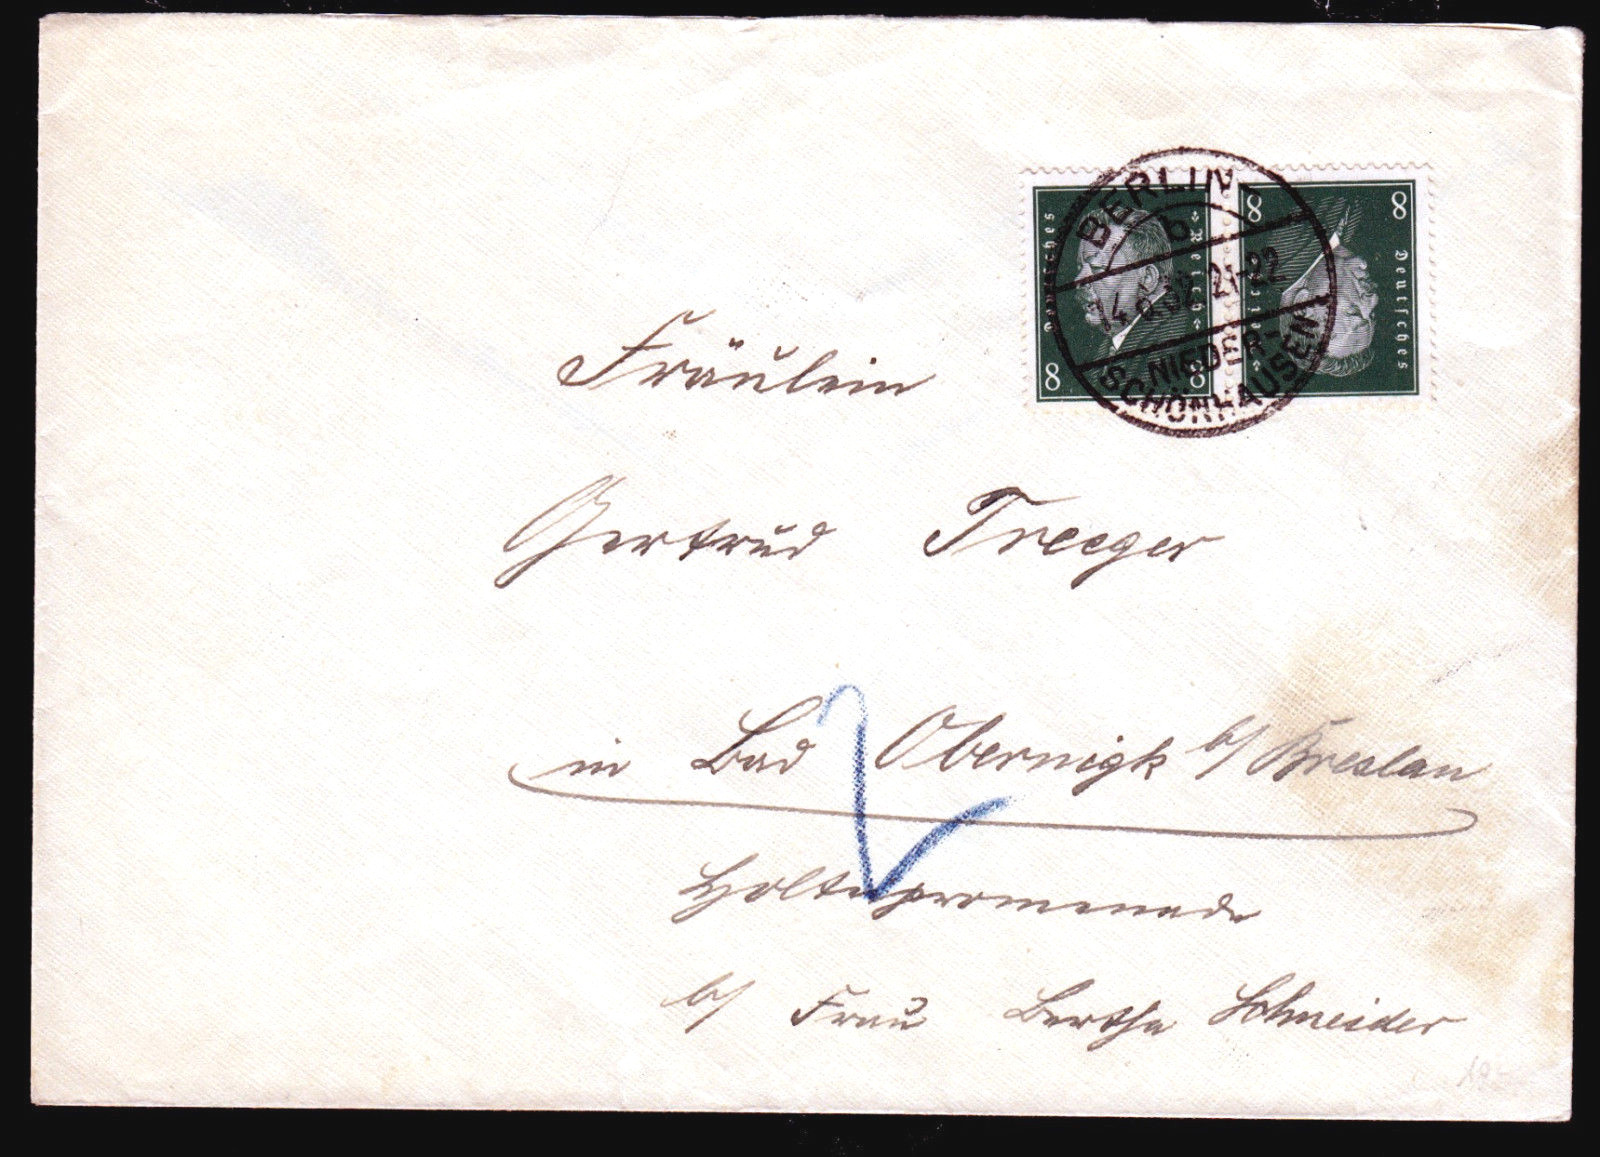 BERLIN
b
14.6.32 21-22
NIEDER-
SCHÖNHAUSEN
Deutsches Reich
8 8
Deutsches Reich
8 8
Fräulein
Gertrud Treeger
in Bad Obernigk b/ Breslau
Holteipromenade
b/ Frau Bertha Schneider